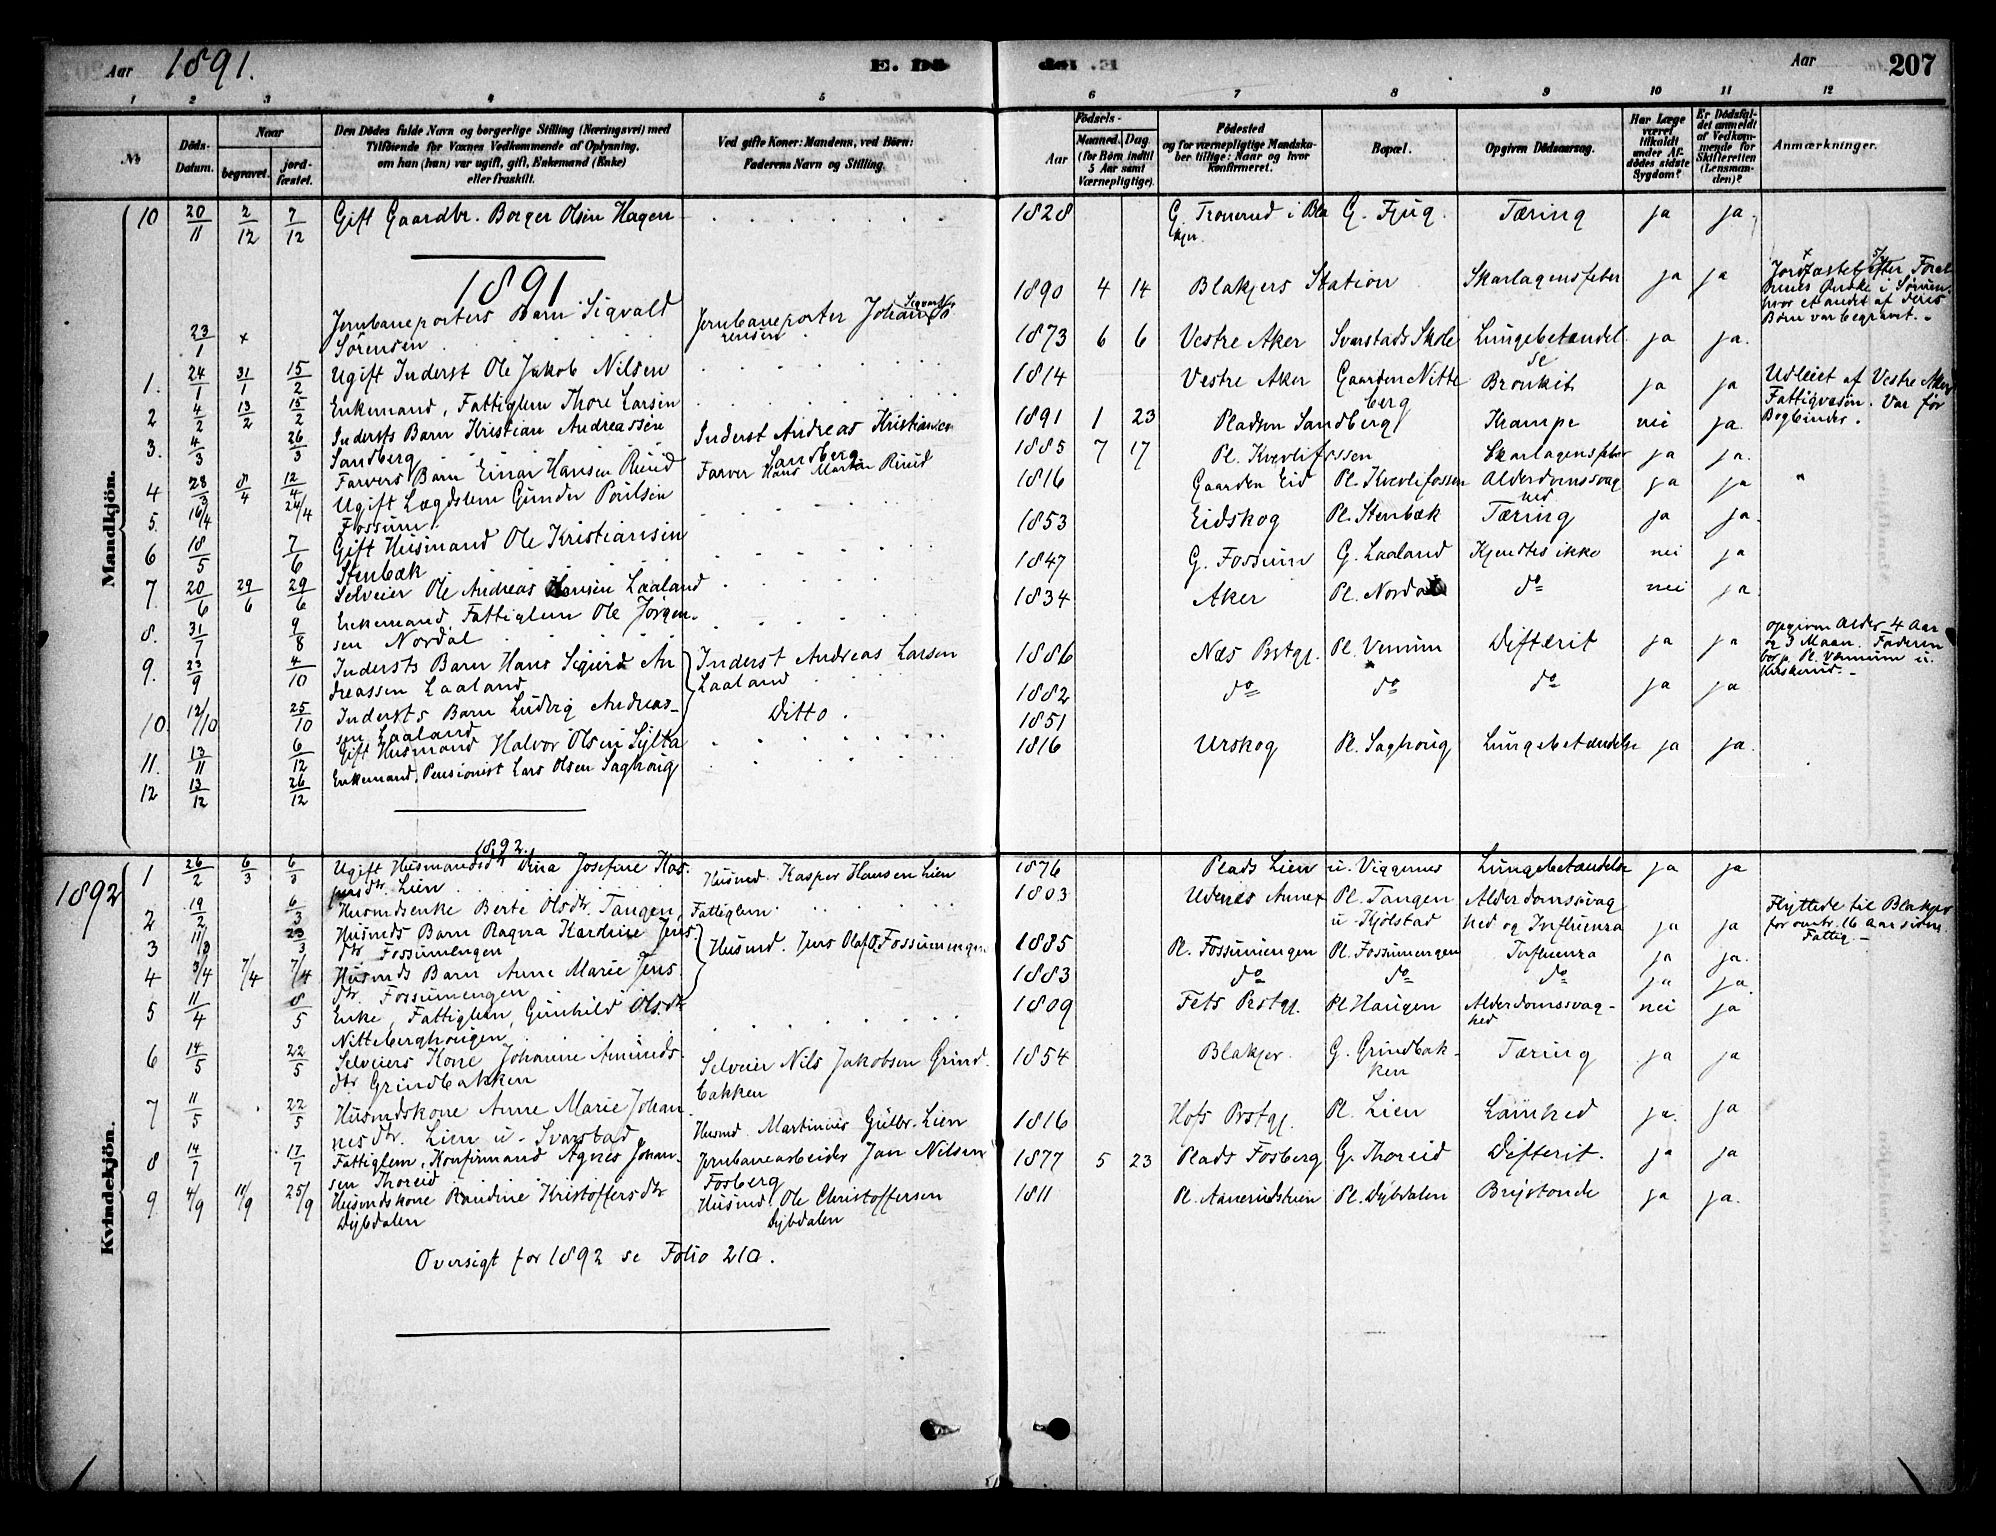 Aar 1891. E. Dö
de. E. Aar 207
1 2 3 4 5 6 7 8 9 10 11 12
No
Döds-Datum.
Naar
begravet.
jordfæstet.
Den Dödes fulde Navn og borgerlige Stilling (Næringsvei) med
Tilföiende for Voxnes Vedkommende af Oplysning,
om han (hun) var ugift, gift, Enkemand (Enke)
eller fraskilt.
Ved gifte Koner: Mandens, ved Börn:
Faderens Navn og Stilling.
Födsels-
Aar
Maaned. Dag.
(for Börn indtil
5 Aar samt
Værnepligtige).
Födested
og for værnepligtige Mandska-
ber tillige: Naar og hvor
konfirmeret.
Bopæl.
Opgiven Dödsaarsag.
Har Læge
været
tilkaldt
under Af-
dödes sidste
Sygdom?
Er Dödsfal-
det anmeldt
af Vedkom-
mende for
Skifteretten
(Lensman-
den)?
Anmærkninger.
Mandkjön.
10 20/11 2/12 7/12 Gift Gaardbr. Borger Olsen Hagen 1828 G. Tronerud i Bla
kjer. G. Fjug. Tæring ja ja.
1891
23/1 x Jernbaneporters Barn Sigvald
Sørensen Jernbaneporter Johan Sigvart Sø
rensen 1890 4 14 Blakjers Station Skarlagensfeber ja ja Jordfæstet efter Foræl
drenes Ønske i Sørum
hvor et andet af deres
Børn var begravet.
1. 24/1 31/1 15/2 Ugift Inderst Ole Jakob Nilsen 1873 6 6 Vestre Aker Svarstads Skole Lungebetændel
se ja ja.
2 4/2 13/2 15/2 Enkemand, Fattiglem Thore Larsen 1814 Vestre Aker Gaarden Nitte
berg Bronkit ja ja Udleiet af Vestre Aker
Fattigvæsen. Var før
Bogbinder.
3. 4/3 26/3 Indersts Barn Kristian Andreassen
Sandberg Inderst Andreas Kristiansen
Sandberg 1891 1 23 Pladsen Sandberg Krampe nei ja
4 28/3 8/4 12/4 Farvers Barn Einar Hansen Ruud Farver Hans Martin Ruud 1885 7 17 Pl. Kvevlifossen Skarlagensfeber ja ja.
5. 16/4 24/4 Ugift Lægdslem Gunder Poulsen
Fossum 1816 Gaarden Eid Pl. Kvevlifossen Alderdomssvag
hed ja ja "
6 18/5 7/6 Gift Husmand Ole Kristiansen
Stenbæk 1853 Eidskog Pl. Stenbæk Tæring ja ja.
7. 20/6 29/6 29/6 Selveier Ole Andreas Hansen Laaland 1847 G. Fossum G. Laaland Kjendtes ikke nei ja
8. 31/7 9/8 Enkemand, Fattiglem Ole Jørgen-
sen Nordal 1834 Aker Pl. Nordal do nei ja
9. 23/9 4/10 Indersts Barn Hans Sigurd An
dreassen Laaland Inderst Andreas Larsen
Laaland 1886 Næs Prstgj. Pl. Vennum Difterit ja ja opgiven Alder 4 Aar
og 3 Maan. Faderen
bor p. Pl. Vennum u.
10. 12/10 25/10 Indersts Barn Ludvig Andreas-
sen Laaland Ditto. 1882 do do do ja ja
11. 13/11 6/12 Gift Husmand Halvor Olsen Sylta 1851
12 13/12 26/12 Enkemand, Pensionist Lars Olsen Saghoug 1816 Urskog Pl. Saghoug Lungebetændelse ja ja.
1892.
1892
Kvindekjön.
1 26/2 6/3 6/3 Ugift Husmandsd. Dina Josefine Kas-
persdtr. Lien Husmd. Kasper Hansen Lien 1876 Plads Lien u. Viggenes Lungebetændelse ja ja
2 19/2 6/3 Husmdsenke Berte Olsdtr. Tangen, Fattiglem 1803 Udenes Annex Pl. Tangen
u. Kjølstad Alderdomssvag
hed og Influenza ja ja Flyttede til Blakjer
for omtr. 16 Aar siden.
Fattig.
3 11/3 23/3 Husmds Barn Ragna Karoline Jens
dtr Fossumengen Husmd. Jens Olaf O. Fossumengen 1885 Pl. Fossumengen Pl. Fossumengen Influenza ja ja.
4 3/4 7/4 7/4 Husmds Barn Anne Marie Jens
dtr. Fossumengen 1883 do do do ja ja.
5 11/4 8/5 Enke, Fattiglem, Gunhild Olsdtr
Nitteberghougen 1809 Fets Prstgj. Pl Haugen Alderdomssvag-
hed nei ja
6 14/5 22/5 Selveiers Kone Johanne Amunds
dtr Grindbakken Selveier Nils Jakobsen Grind
bakken 1854 Blakjer. G. Grindbak-
ken Tæring ja ja
7 11/5 22/5 Husmdskone Anne Marie Johan
nesdtr. Lien u. Svarstad Husmd. Martinius Gulbr. Lien 1816 Hofs Prstgj. Pl. Lien Lamhed ja. ja
8 14/7 17/7 Fattiglem, Konfirmand Agnes Johan-
sen Thoreid Jernbanearbeider Jan Nilsen
Fosberg 1877 5 23 Plads Fosberg G. Thoreid Difterit. ja ja
9. 4/9 11/9 25/9 Husmdskone Randine Kristoffersdtr
Dybdalen Husmd. Ole Christoffersen
Dybdalen 1811 Pl. Aanerudsteien Pl. Dybdalen Brystonde ja ja.
Oversigt for 1892 se Folio 210.